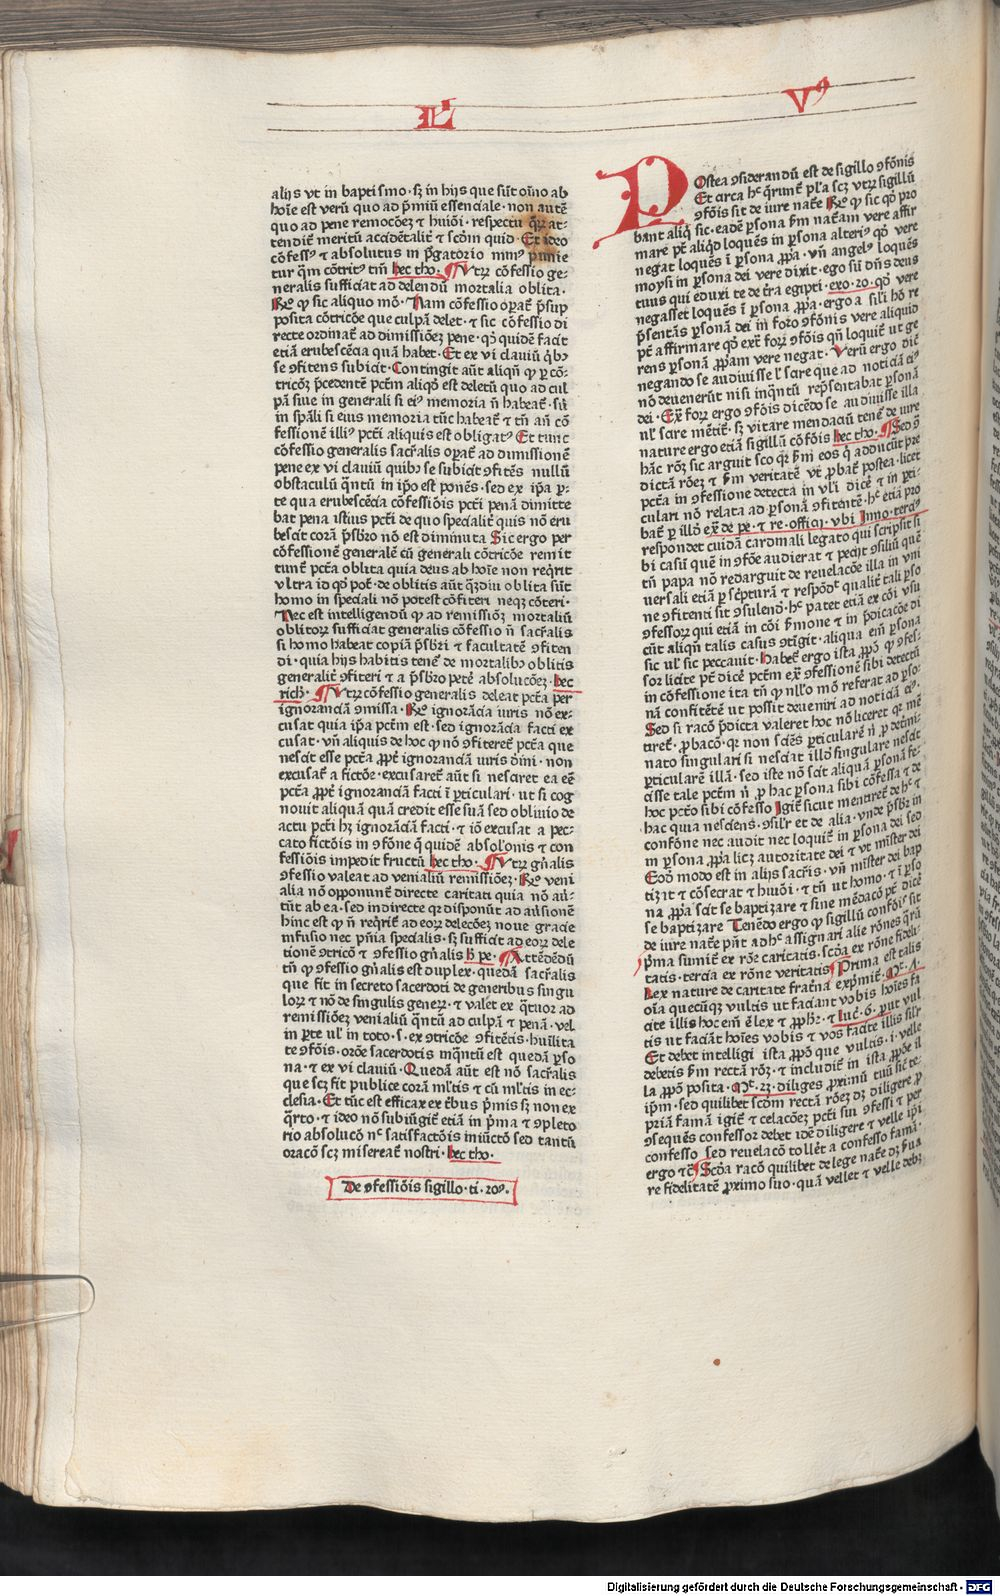 L
Vꝯ
alijs vt in baptismo · sꝫ in hijs que sūt oīno ab
hoīe est verū quo ad p̄miū essenciale · non autē
quo ad pene remocōeꝫ ⁊ huiōi · respectu q̄ꝝ at⸗
tendit᷑ meritū accidētalit᷑ ⁊ scdm quid · Et ideo
cōfessꝰ ⁊ absolutus in p̄gatorio minꝰ punie
tur q̄m cōtritꝰ tn̄ hec tho · ¶ Vtꝝ cōfessio ge⸗
neralis sufficiat ad delendū mortalia oblita ·
Rn̄o ꝙ sic aliquo mō · Nam cōfessio oꝑat᷑ p̄sup
posita cōtricōe que culpā delet · ⁊ sic cōfessio di
recte ordinat᷑ ad dimissiōeꝫ pene · qd̄ quidē facit
etiā erubescēcia quā habet · Et ex vi clauiū qͥbꝫ
se ꝯfitens subicit · Contingit aūt aliqn̄ ꝙ ꝑ cō⸗
tricōeꝫ p̄cedentē pctm̄ aliqd̄ est deletū quo ad cul
pā siue in generali si eiꝰ memoria n̄ habeat᷑ · siū
in sp̄ali si eius memoria tūc habeat᷑ ⁊ tn̄ an̄ cō
fessionē illiꝰ pcti aliquis est obligatꝰ Et tunc
cōfessio generalis sacr̄alis oꝑat᷑ ad dimissionē
pene ex vi clauiū quibꝫ se subicit ꝯfitēs nullū
obstaculū q̄ntū in ip̄o est ponēs · sed ex ip̄a ꝑ⸗
te qua erubescēcia cōfessiōis pcti penā dimitte
bat pena istius pcti de quo specialit᷑ quis nō eru
bescit corā p̄sbr̄o nō est diminuta Sic ergo per
cōfessionē generalē cū generali cōtricōe remit
tunt᷑ pctā oblita quia deus ab hoīe non reqͥrit
vltra id qd̄ pōt · de oblitis aūt q̄ꝫdiu oblita sūt
homo in speciali nō potest cōfiteri neqꝫ cōteri ·
Nec est intelligendū ꝙ ad remissiōeꝫ mortaliū
oblitoꝝ sufficiat generalis cōfessio n̄ sacr̄alis
si homo habeat copiā p̄sbr̄i ⁊ facultatē ꝯfiten
di · quia hijs habitis tenet᷑ de mortalibꝫ oblitis
generalit᷑ ꝯfiteri ⁊ a p̄sbr̄o petē absolucōeꝫ · hec
rich᷑ · ¶ Vtꝝ cōfessio generalis deleat pctā per
ignoranciā ꝯmissa · Rn̄o ignorācia iuris nō ex⸗
cusat quia ip̄a pctm̄ est · sed ignorācia facti ex
cusat · vn̄ aliquis de hoc ꝙ nō ꝯfiteret᷑ pctā que
nescit esse pctā ꝓpt᷑ ignoranciā iuris diuini · non
excusat᷑ a fictōe · excusaret᷑ aūt si nesciret ea eē
pctā ꝓpt᷑ ignoranciā facti ī ꝑticulari · ut si cog
nouit aliquā quā credit esse suā sed obliuio de
actu pcti hꝫ ignorāciā facti · ⁊ iō excusat a pec⸗
cato fictōis in ꝯfōne q̄ quidē absolōnis ⁊ con
fessiōis impedit fructū hec tho · ¶ Vtꝝ gn̄alis
ꝯfessio valeat ad venialiū remissiōeꝫ · Rn̄o veni
alia nō opponunt᷑ directe caritati quia nō au᷑⸗
tūt ab ea · sed indirecte qꝛ disponūt ad au᷑sionē
hinc est ꝙ n̄ reqͥrit᷑ ad eoꝝ delecōeꝫ noue gracie
infusio nec pn̄ia specialis · sꝫ sufficit ad eoꝝ dele
tionē ꝯtricō ⁊ ꝯfessio gn̄alis h̄ pe · ¶ Attēdēdū
tn̄ ꝙ ꝯfessio gn̄alis est duplex · quedā sacr̄alis
que fit in secreto sacerdoti de generibus singu
loꝝ ⁊ nō de singulis generꝝ · ⁊ valet ex q̄tuor ad
remissiōeꝫ venialiū q̄ntū ad culpā ⁊ penā · vel
in ꝑte ul᷑ in toto · s · ex ꝯtricōe ꝯfitētis · hūilita
te ꝯfōis · orōe sacerdotis inq̄ntū est quedā ꝑso
na · ⁊ ex vi clauiū · Quedā aūt est nō sacr̄alis
que scꝫ fit publice corā ml᷑tis ⁊ cū ml᷑tis in ec⸗
clesia · Et tūc est efficax ex tribus p̄mis sꝫ non ex
q̄rto · ⁊ ideo nō subiūgit᷑ etiā in p̄ma ⁊ ꝯpleto
rio absolucō nͨ satisfactōis iniūctō sed tantū
oracō scꝫ misereat᷑ nostri · hec tho ·
De ꝯfessiōis sigillo · ti · 20ꝯ ·
POstea ꝯsiderandū est de sigillo ꝯfōnis
Et circa hͨ q̄runt᷑ pl᷑a scꝫ vtꝝ sigillū
ꝯfōis sit de iure nat᷑e Rn̄o ꝙ sic qd̄ pro
bant aliqͥ sic · eadē ꝑsona s̄m nat᷑am vere affir
mare pt̄ aliqͥd loquēs in ꝑsona alteriꝰ qd̄ vere
negat loquēs ī ꝑsona ꝓpͥa · vn̄ angelꝰ loquēs
moysi in ꝑsona dei vere dixit · ego sū dn̄s deus
tuus qui eduxi te de t᷑ra egipti · exo · 20 · qd̄ vere
negasset loquēs ī ꝑsona ꝓpͥa · ergo a sil᷑i hō re
p̄sentās ꝑsonā dei in foro ꝯfōnis vere aliquid
pt̄ affirmare qd̄ ext᷑ foꝝ ꝯfōis qn̄ loquit᷑ ut ge
rens ꝑsonā ꝓpͥam vere negat · Verū ergo dic̄
negando se audiuisse l᷑ scire que ad noticiā eiꝰ
nō deuenerūt nisi inq̄ntū rep̄sentabat ꝑsonā
dei · Ext᷑ foꝝ ergo ꝯfōis dicēdo se audiuisse illa
ul᷑ scire mētit᷑ · sꝫ vitare mendaciū tenet᷑ de iure
nature ergo etiā sigillū cōfōis hec tho · ¶ Sed ꝯ᷑
hāc rōeꝫ sic arguit sco qꝛ s̄m eos q̄ adducūt pre
dictā rōeꝫ ⁊ s̄m veritatē vt᷑ ꝓbat᷑ postea · licet
pctā in ꝯfessione detecta in vl᷑i dicet᷑ ⁊ in ꝑti⸗
culari nō relata ad ꝑsonā ꝯfitentē · hͨ etiā pro
bat᷑ ꝑ illd̄ ext᷑ de pe · ⁊ re · officꝫ · vbi Inno · terciꝰ
respondet cuidā cardinali legato qui scripsit si
bi casū quē in ꝯfōe audierat ⁊ petijt ꝯsiliū quē
tn̄ papa nō redarguit de reuelacōe illa in vni
uersali etiā ꝑ sc̄pturā ⁊ respōdet᷑ qualit᷑ tali ꝑso
ne ꝯfitenti sit ꝯsulendū · hͨ patet etiā ex cōi vsu
ꝯfessoꝝ qui etiā in cōi s̄mone ⁊ in p̄dicacōe di
cūt aliqn̄ talis casus ꝯtigit · aliqua em̄ ꝑsona
sic ul᷑ sic peccauit · habet᷑ ergo ista ꝓpō ꝙ ꝯfes⸗
soꝝ licite pt̄ dicē pctm̄ ext᷑ ꝯfessionē sibi detectū
in cōfessione ita tn̄ ꝙ nll᷑o mō referat ad ꝑso⸗
nā confitētē ut possit deueniri ad noticiā eiꝰ ·
Sed si racō p̄dicta valeret hoc nō liceret qꝛ mē
tiret᷑ · ꝓbacō · qꝛ non sciēs ꝑticularē n̄ ꝑ det᷑mi⸗
nato singulari si nesciat illd̄ singulare nescit
ꝑticularē illā · sed iste nō scit aliquā ꝑsonā fe⸗
cisse tale pctm̄ n̄ ꝑ hac ꝑsona sibi cōfessa ⁊ de
hoc pctō sibi cōfesso Igit᷑ sicut mentiret᷑ de hͨ ⁊
hac quia nesciens · ꝯsil᷑r et de alia · vnde p̄sbr̄ in
confōne nec audit nec loquit᷑ in ꝑsona dei sed
in ꝑsona ꝓpͥa licꝫ autoritate dei ⁊ vt mīster dei
Eod̄ modo est in alijs sacr̄is · vn̄ mīster dei bap
tiꝫat ⁊ cōsecrat ⁊ huiōi · ⁊ tn̄ ut homo · ⁊ ī ꝑso
na ꝓpͥa scit se baptizare ⁊ sine mēdacō pt̄ dicē
se baptizare Tenēdo ergo ꝙ sigillū confōis sit
de iure nat᷑e pn̄t ad hͨ assignari alie rōnes q̄rū
p̄ma sumit᷑ ex rōe caritatis · scd̄a ex rōne fideli⸗
tatis · tercia ex rōne veritatis ¶ Prima est talis
Lex nature de caritate frat᷑na exp̄mit᷑ · Mͭ · 7 ·
oīa quecūqꝫ vultis ut faciant vobis hoīes fa
cite illis hoc em̄ ē lex ⁊ ꝓph᷑ · ⁊ Luc̄ · 6 · prout vul
tis ut faciāt hoīes vobis ⁊ vos facite illis sil᷑r
Et debet intelligi ista ꝓpō que vultis · i · velle
debetis s̄m rectā rōeꝫ · ⁊ includit᷑ in ista ꝓpōe il
la ꝓpō posita · Mͭ · 22 · diliges ꝓximū tuū sic᷑ te⸗
ip̄m · sed quilibet scdm rectā rōeꝫ dꝫ diligere ꝓ
priā famā igit᷑ ⁊ celacōeꝫ pcti sui ꝯfessi ⁊ per
ꝯsequēs confessor debet idē diligere ⁊ velle ip̄i
confesso sed reuelacō tollet᷑ a confesso famā ·
ergo ⁊c̄ ¶ Scd̄a racō quilibet de lege nat᷑e dꝫ s̄ua
re fidelitatē ꝓximo suo · quā vellet ⁊ velle debꝫ
Digitalisierung gefördert durch die Deutsche Forschungsgemeinschaft - DFG